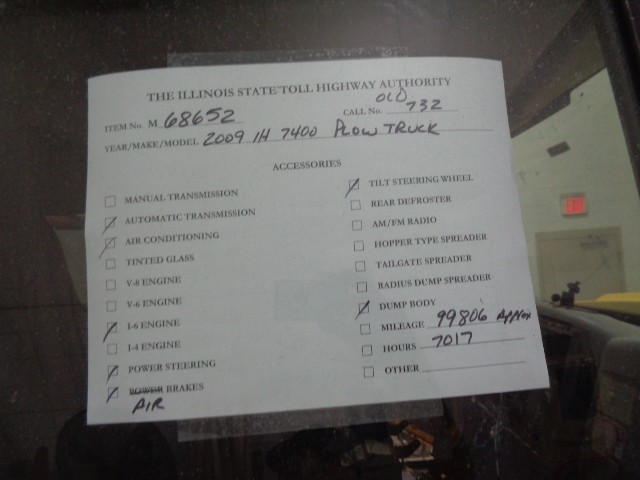 THE ILLINOIS STATE TOLL HIGHWAY AUTHORITY
OLD
ITEM No. M 68652 CALL No. 732
YEAR/MAKE/MODEL 2009 IH 7400 PLOW TRUCK
ACCESSORIES
MANUAL TRANSMISSION
AUTOMATIC TRANSMISSION
AIR CONDITIONING
TINTED GLASS
V-8 ENGINE
V-6 ENGINE
I-6 ENGINE
I-4 ENGINE
POWER STEERING
POWER BRAKES
AIR
TILT STEERING WHEEL
REAR DEFROSTER
AM/FM RADIO
HOPPER TYPE SPREADER
TAILGATE SPREADER
RADIUS DUMP SPREADER
DUMP BODY
MILEAGE 99806 APPROX
HOURS 7017
OTHER